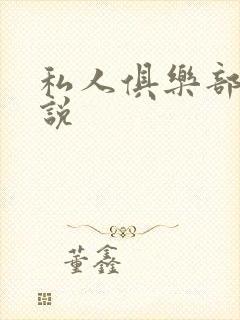 私人俱樂部
說
董鑫